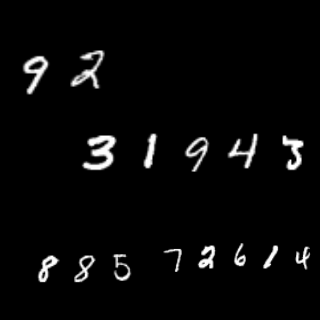 9 2
3 1 9 4 3
8 8 5 7 2 6 1 4